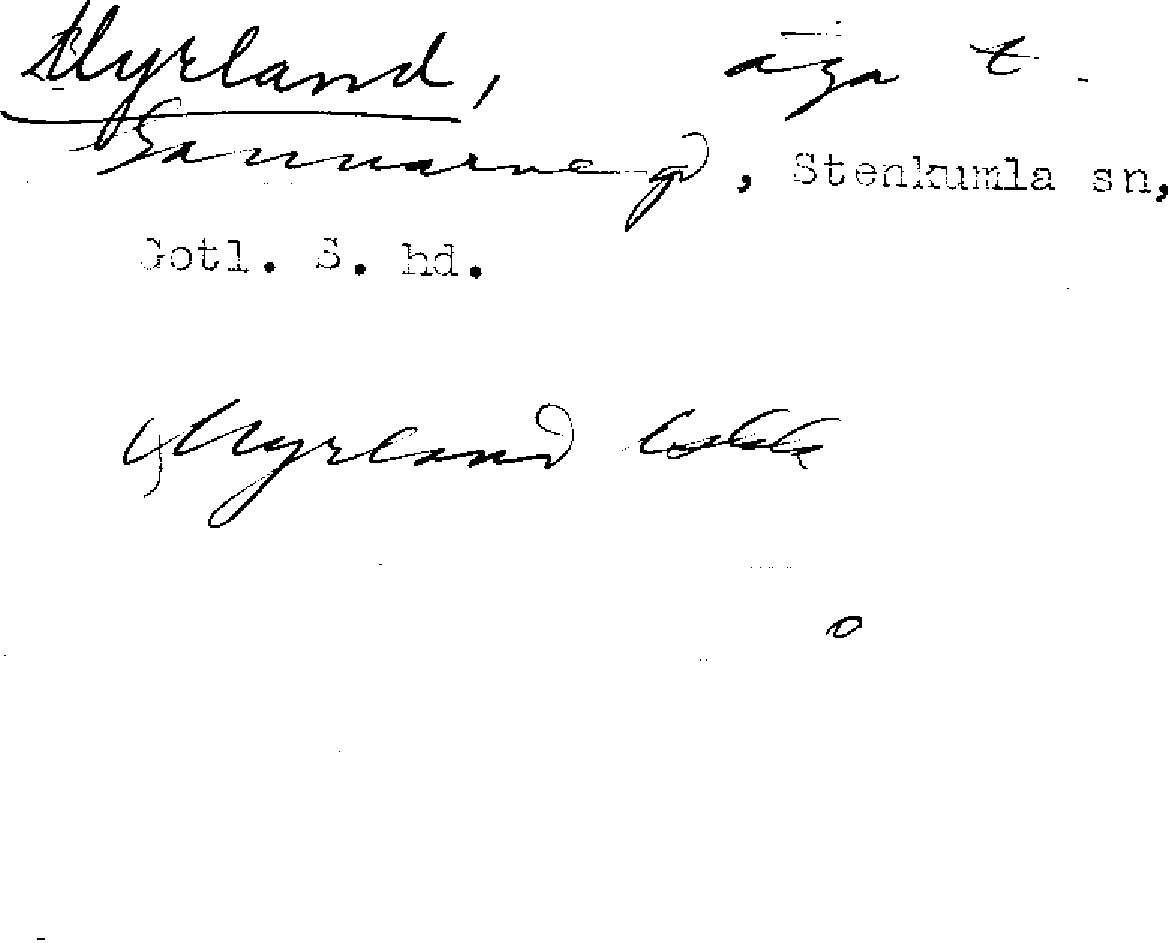 Myrland, äga t.
Sannarve gd, Stenkumla sn,
Gotl. S. hd.
Myrland